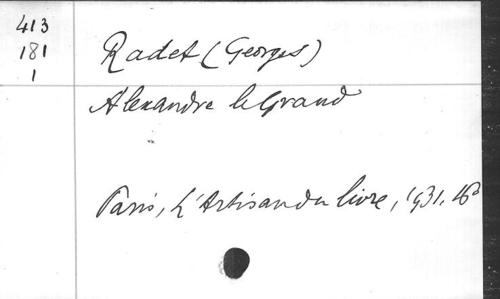 413
181
1
Radet (Georges)
Alexandre le Grand
Paris, L'Artisan du livre, 1931, 16°